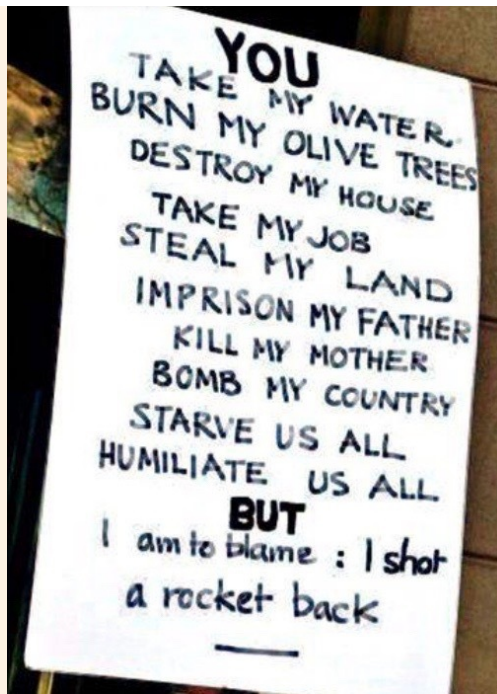 YOU
TAKE MY WATER
BURN MY OLIVE TREES
DESTROY MY HOUSE
TAKE MY JOB
STEAL MY LAND
IMPRISON MY FATHER
KILL MY MOTHER
BOMB MY COUNTRY
STARVE US ALL
HUMILIATE US ALL
BUT
I am to blame : I shot
a rocket back